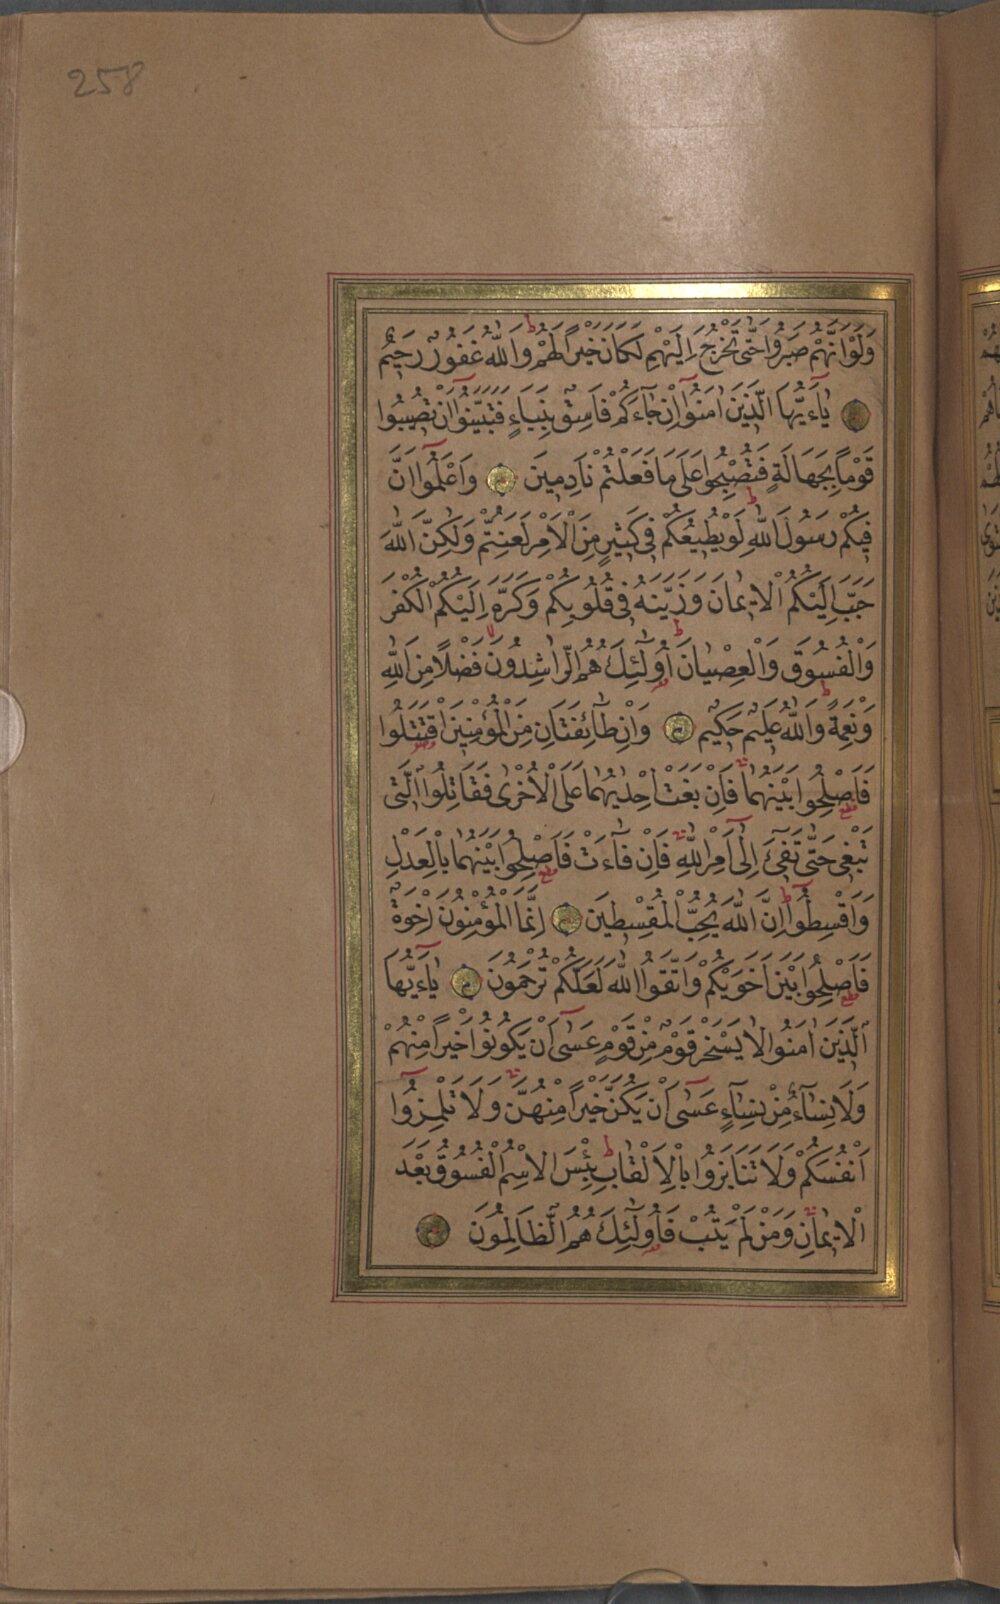 258
وَلَوْ اَنَّهُمْ صَبَرُوا حَتّٰى تَخْرُجَ اِلَيْهِمْ لَكَانَ خَيْرًا لَهُمْ وَاللّٰهُ غَفُورٌ رَحِيمٌ
يَٓا اَيُّهَا الَّذِينَ اٰمَنُٓوا اِنْ جَٓاءَكُمْ فَاسِقٌ بِنَبَاءٍ فَتَبَيَّنُٓوا اَنْ تُصِيبُوا
قَوْمًا بِجَهَالَةٍ فَتُصْبِحُوا عَلٰى مَا فَعَلْتُمْ نَادِمِينَ وَاعْلَمُٓوا اَنَّ
فِيكُمْ رَسُولَ اللّٰهِ لَوْ يُطِيعُكُمْ فِى كَثِيرٍ مِنَ الْاَمْرِ لَعَنِتُّمْ وَلٰكِنَّ اللّٰهَ
حَبَّبَ اِلَيْكُمُ الْاِيمَانَ وَزَيَّنَهُ فِى قُلُوبِكُمْ وَكَرَّهَ اِلَيْكُمُ الْكُفْرَ
وَالْفُسُوقَ وَالْعِصْيَانَ اُولٰٓئِكَ هُمُ الرَّاشِدُونَ فَضْلًا مِنَ اللّٰهِ
وَنِعْمَةً وَاللّٰهُ عَلِيمٌ حَكِيمٌ وَاِنْ طَٓائِفَتَانِ مِنَ الْمُؤْمِنِينَ اقْتَتَلُوا
فَاَصْلِحُوا بَيْنَهُمَا فَاِنْ بَغَتْ اِحْدٰيهُمَا عَلَى الْاُخْرٰى فَقَاتِلُوا الَّتِى
تَبْغِى حَتّٰى تَفِٓىءَ اِلٰٓى اَمْرِ اللّٰهِ فَاِنْ فَٓاءَتْ فَاَصْلِحُوا بَيْنَهُمَا بِالْعَدْلِ
وَاَقْسِطُٓوا اِنَّ اللّٰهَ يُحِبُّ الْمُقْسِطِينَ اِنَّمَا الْمُؤْمِنُونَ اِخْوَةٌ
فَاَصْلِحُوا بَيْنَ اَخَوَيْكُمْ وَاتَّقُوا اللّٰهَ لَعَلَّكُمْ تُرْحَمُونَ يَٓا اَيُّهَا
الَّذِينَ اٰمَنُوا لَا يَسْخَرْ قَوْمٌ مِنْ قَوْمٍ عَسٰٓى اَنْ يَكُونُوا خَيْرًا مِنْهُمْ
وَلَا نِسَٓاءٌ مِنْ نِسَٓاءٍ عَسٰٓى اَنْ يَكُنَّ خَيْرًا مِنْهُنَّ وَلَا تَلْمِزُٓوا
اَنْفُسَكُمْ وَلَا تَنَابَزُوا بِالْاَلْقَابِ بِئْسَ الْاِسْمُ الْفُسُوقُ بَعْدَ
الْاِيمَانِ وَمَنْ لَمْ يَتُبْ فَاُولٰٓئِكَ هُمُ الظَّالِمُونَ